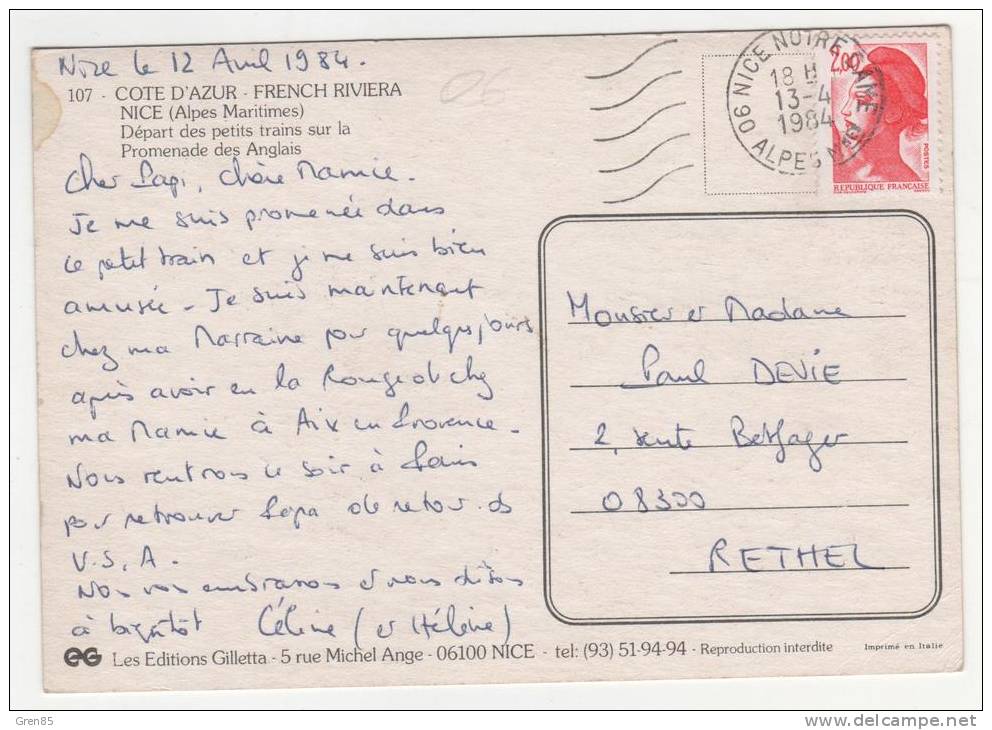 Nice le 12 Avril 1984.
107 - COTE D'AZUR - FRENCH RIVIERA
NICE (Alpes Maritimes)
Départ des petits trains sur la
Promenade des Anglais
Cher Papi, chère Mamie.
Je me suis promenée dans
le petit train et je me suis bien
amusée - Je suis maintenant
chez ma Marraine pour quelques jours
après avoir eu la Rougeole chez
ma Mamie à Aix en Provence -
Nous rentrons ce soir à Paris
pour retrouver Papa de retour des
U.S.A.
Nous vous embrassons et vous disons
à bientôt Céline (et Hélène)
06
06 NICE NOTRE DAME
18 H
13-4
1984
ALPES MMES
2,00
POSTES
REPUBLIQUE FRANÇAISE
Monsieur et Madame
Paul DEVIE
2, sente
08300
RETHEL
EG Les Editions Gilletta - 5 rue Michel Ange - 06100 NICE - tel: (93) 51-94-94 - Reproduction interdite
Imprimé en Italie
Gren85
www.delcampe.net